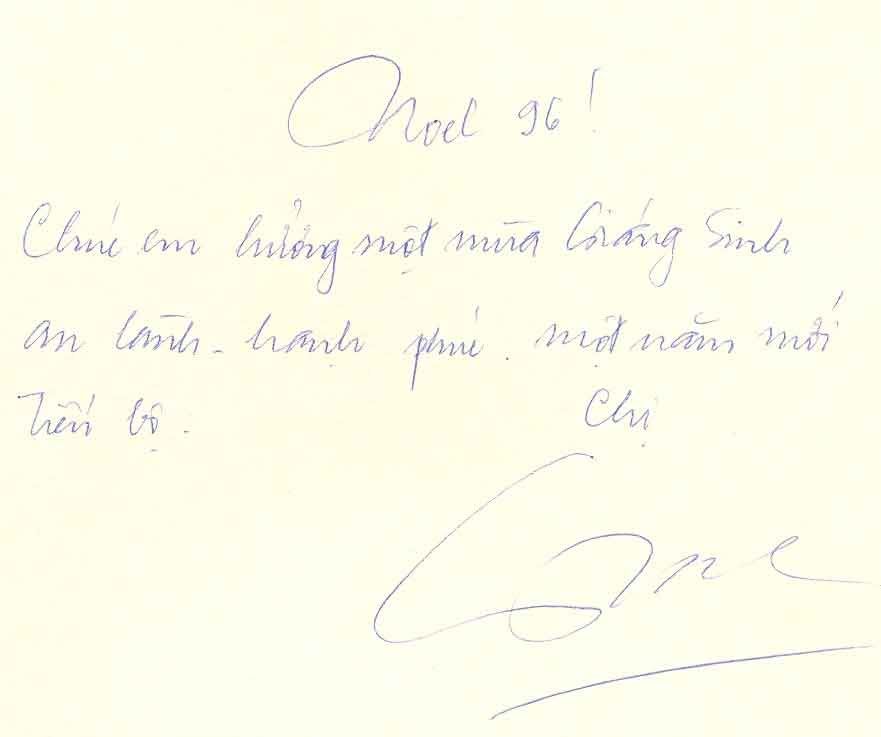 Noel 96!
Chúc em hưởng một mùa Giáng Sinh
an lành - hạnh phúc. một năm mới
Tiến bộ.
Chị